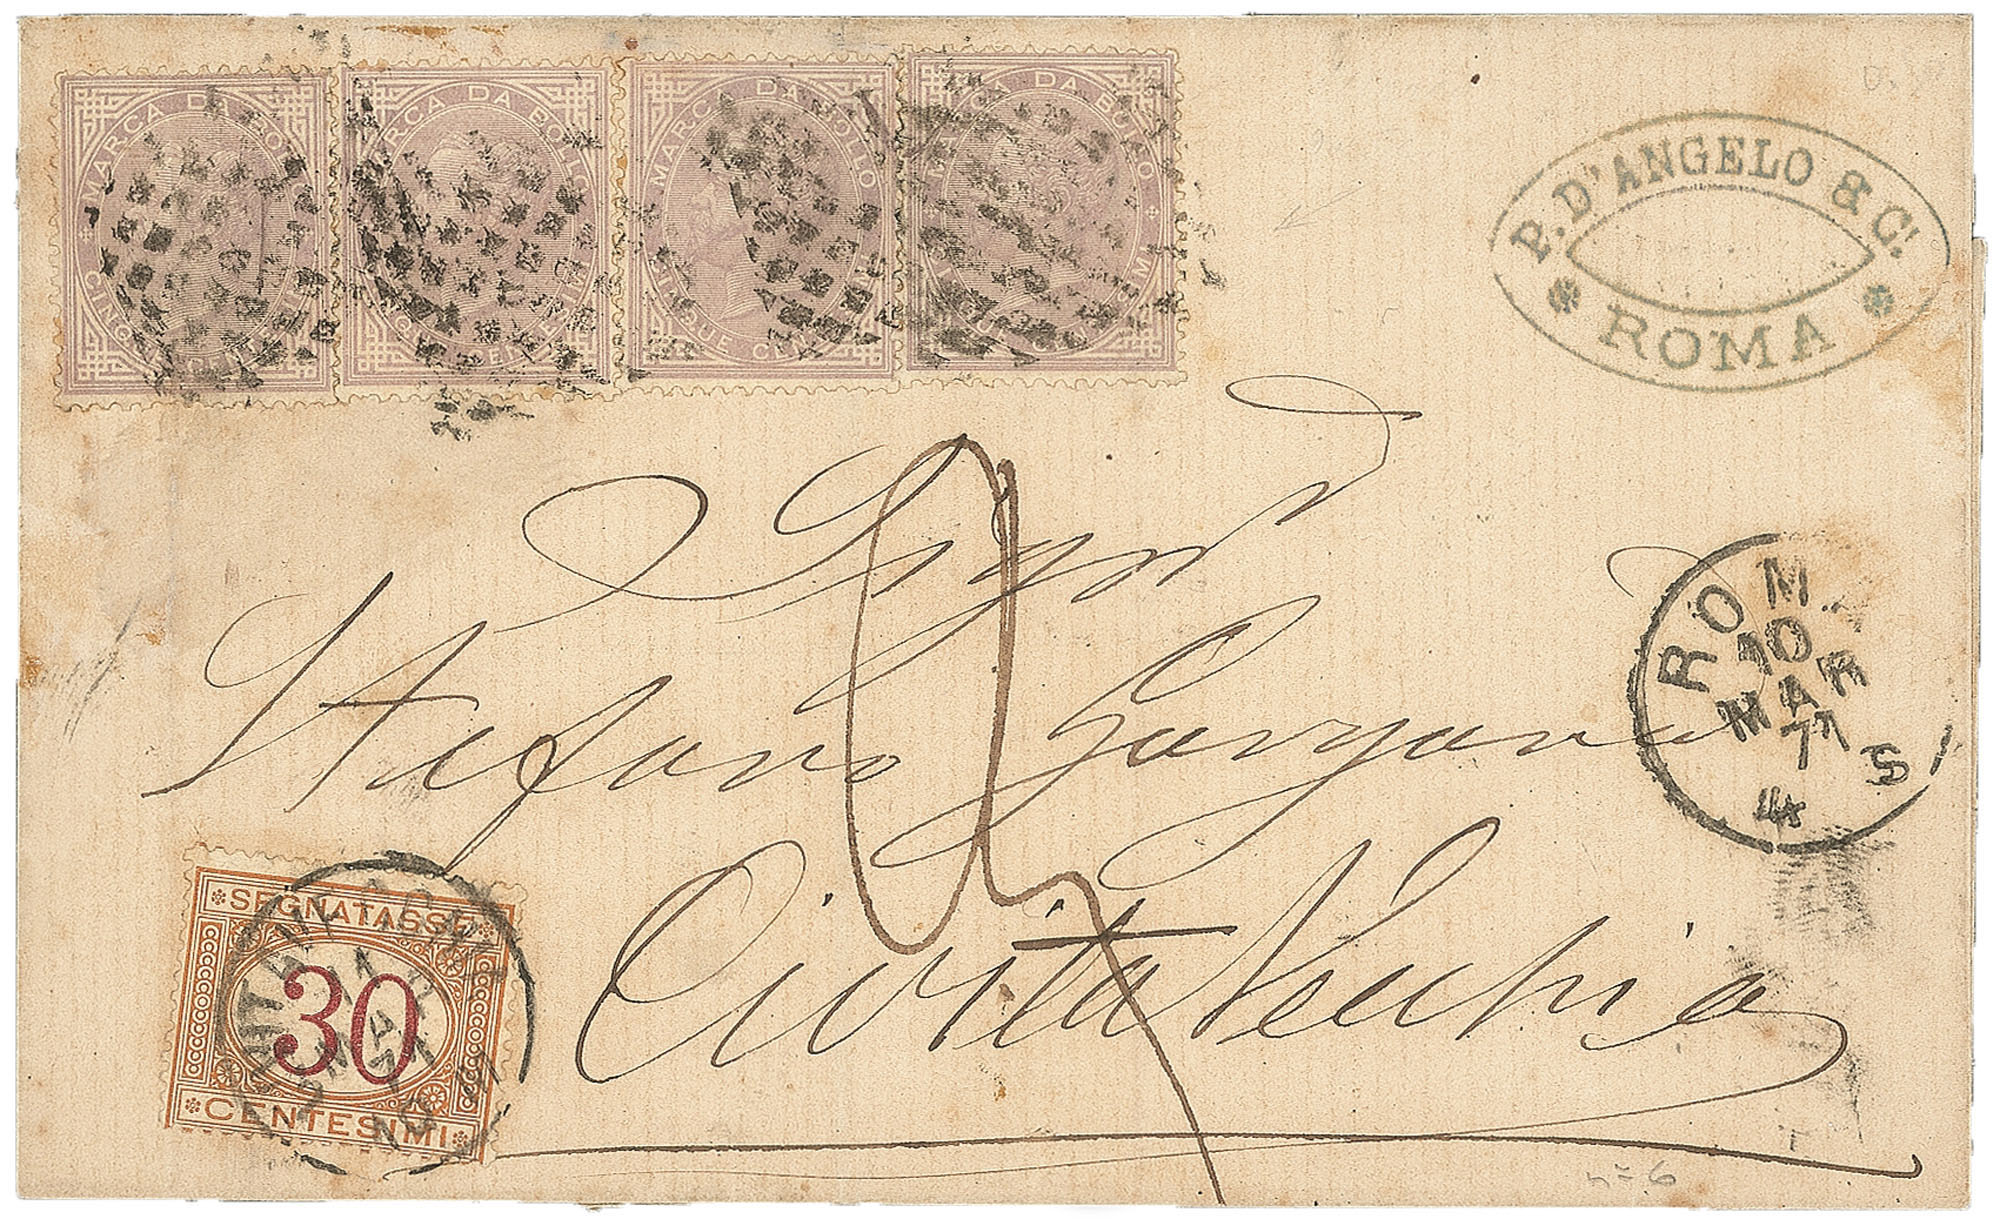 MARCA DA BOLLO
CINQUE CENTESIMI
MARCA DA BOLLO
CINQUE CENTESIMI
MARCA DA BOLLO
CINQUE CENTESIMI
MARCA DA BOLLO
CINQUE CENTESIMI
P. D'ANGELO & C.
ROMA
Sigr
Stefano
Civita Vecchia
ROMA
10
MAR
71
4 S
SEGNATASSE
30
CENTESIMI
nº 6